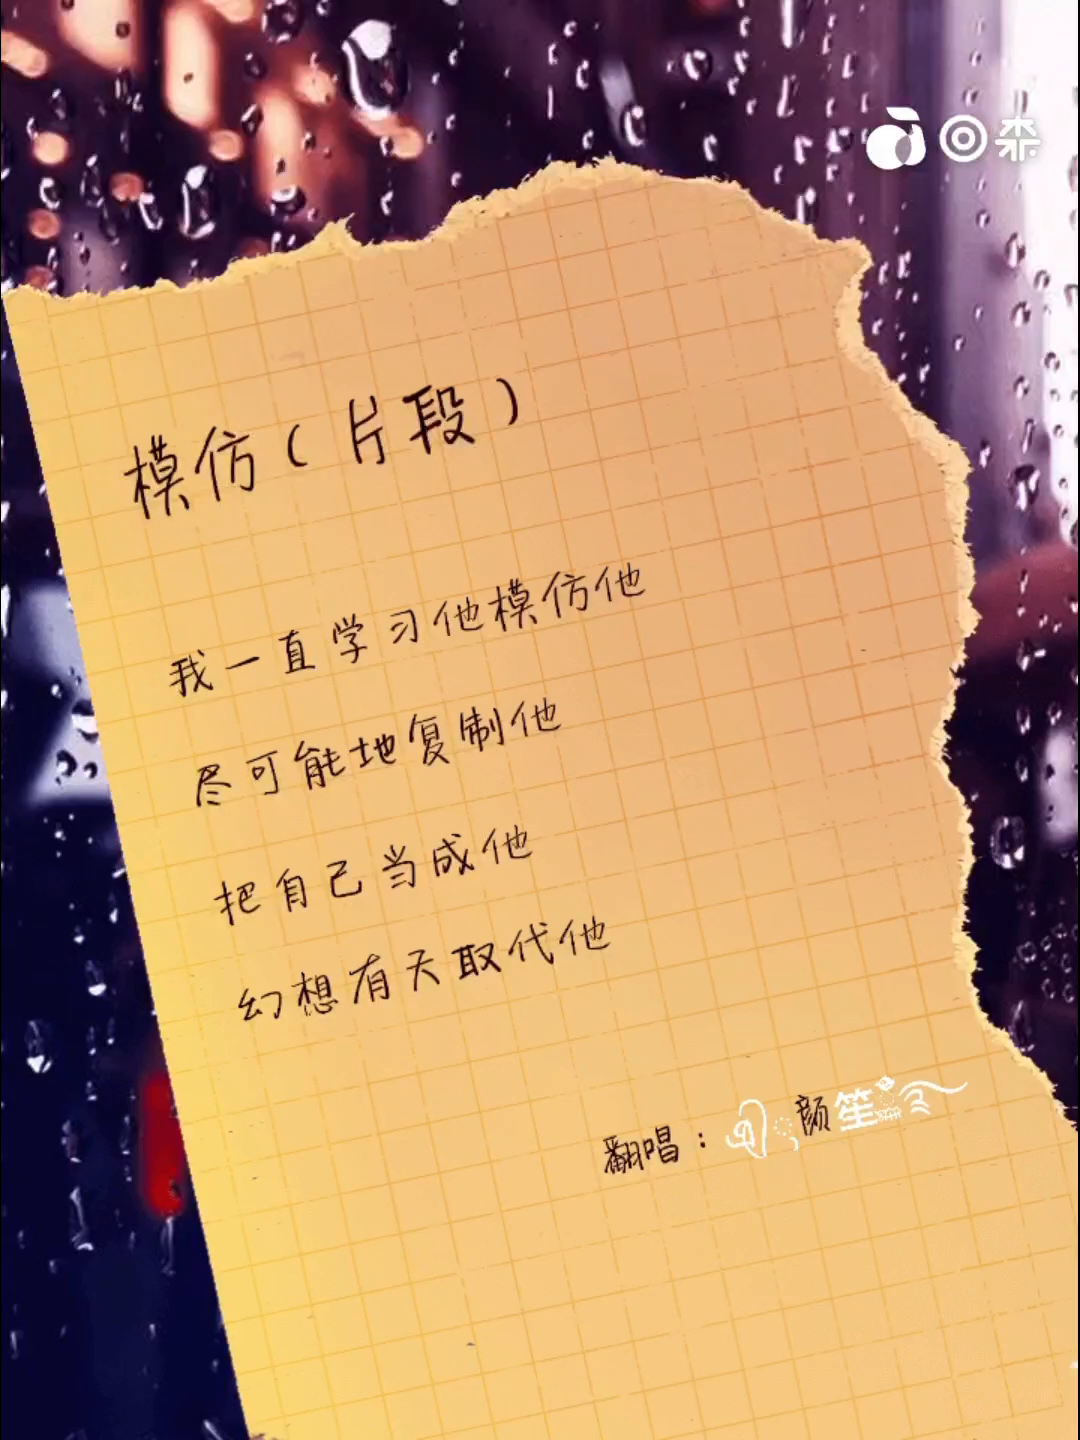 模仿（片段）
我一直学习他模仿他
尽可能地复制他
把自己当成他
幻想有天取代他
翻唱：颜笙